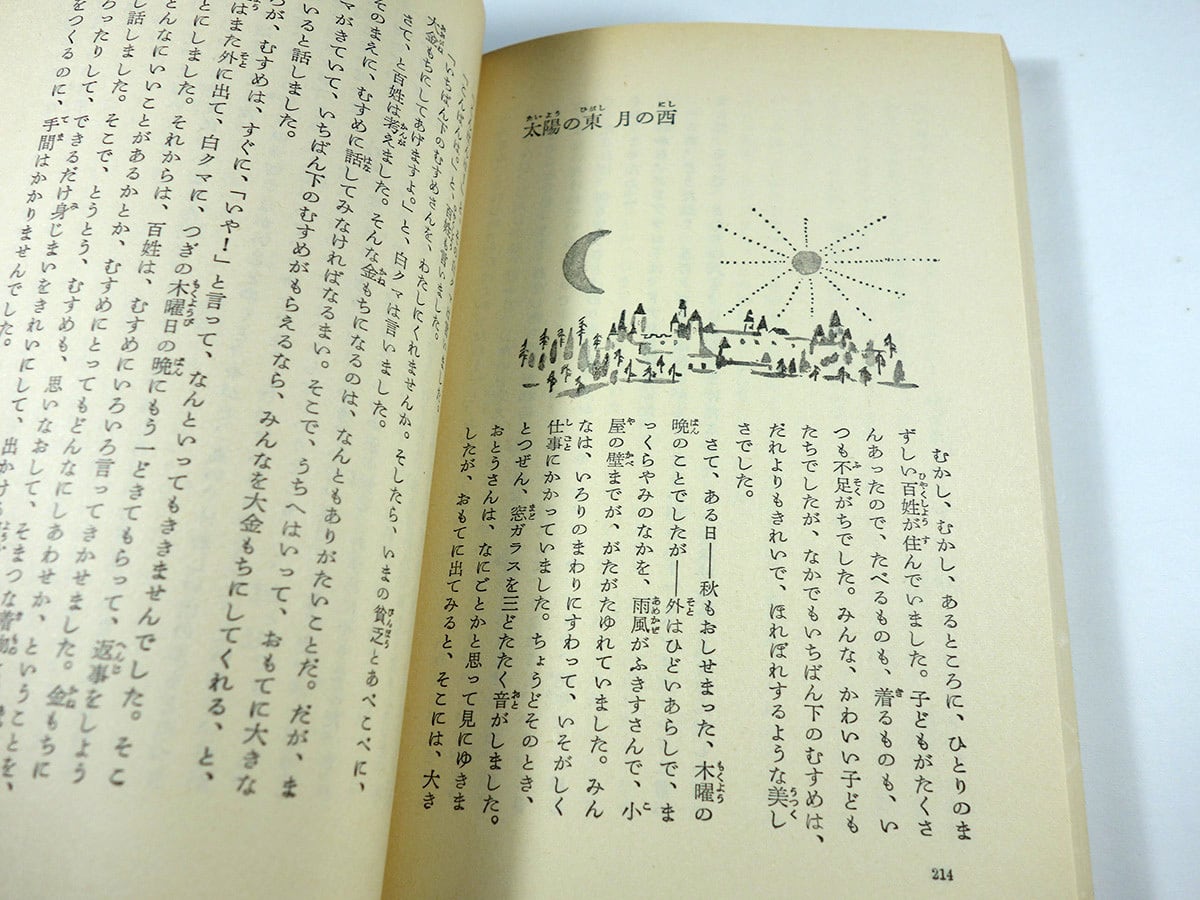 太陽の東 月の西
むかし、むかし、あるところに、ひとりのま
ずしい百姓が住んでいました。子どもがたくさ
んあったので、たべるものも、着るものも、い
つも不足がちでした。みんな、かわいい子ども
たちでしたが、なかでもいちばん下のむすめは、
だれよりもきれいで、ほれぼれするような美し
さでした。
さて、ある日――秋もおしせまった、木曜の
晩のことでしたが――外はひどいあらしで、ま
っくらやみのなかを、雨風がふきすさんで、小
屋の壁までが、がたがたゆれていました。みん
なは、いろりのまわりにすわって、いそがしく
仕事にかかっていました。ちょうどそのとき、
とつぜん、窓ガラスを三どたたく音がしました。
おとうさんは、なにごとかと思って見にゆきま
したが、おもてに出てみると、そこには、大き
214
「こんばんは。」と、百姓も言いました。
「いちばん下のむすめさんを、わたしにくれませんか。そしたら、いまの貧乏とあべこべに、
大金もちにしてあげますよ。」と、白クマは言いました。
さて、と百姓は考えました。そんな金もちになるのは、なんともありがたいことだ。だが、ま
そのまえに、むすめに話してみなければなるまい。そこで、うちへはいって、おもてに大きな
マがきていて、いちばん下のむすめがもらえるなら、みんなを大金もちにしてくれる、と、
いると話しました。
が、むすめは、すぐに、「いや！」と言って、なんといってもききませんでした。そこ
はまた外に出て、白クマに、つぎの木曜日の晩にもう一どきてもらって、返事をしよう
とにしました。それからは、百姓は、むすめにいろいろ言ってきかせました。金もちに
どんなにいいことがあるかとか、むすめにとってもどんなにしあわせか、ということを、
し話しました。そこで、とうとう、むすめも、思いなおして、そまつな着物
わったりして、できるだけ身じまいをきれいにして、出かける
をつくるのに、手間はかかりませんでした。